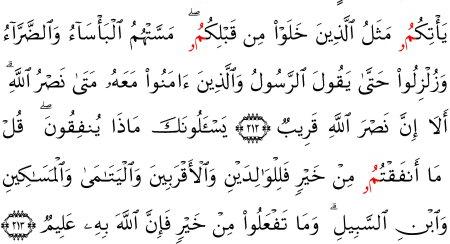 يَأْتِكُمُۥ مَثَلُ الَّذِينَ خَلَوْاْ مِن قَبْلِكُمُۥۖ مَسَّتْهُمُ الْبَأْسَآءُ وَالضَّرَّآءُ
وَزُلْزِلُواْ حَتَّىٰ يَقُولَ الرَّسُولُ وَالَّذِينَ ءَامَنُواْ مَعَهُۥ مَتَىٰ نَصْرُ اللَّهِۗ
أَلَآ إِنَّ نَصْرَ اللَّهِ قَرِيبٌ ﴿٢١٢﴾ يَسْـَٔلُونَكَ مَاذَا يُنفِقُونَۖ قُلْ
مَآ أَنفَقْتُمُۥ مِنْ خَيْرٍ فَلِلْوَٰلِدَيْنِ وَالْأَقْرَبِينَ وَالْيَتَٰمَىٰ وَالْمَسَٰكِينِ
وَابْنِ السَّبِيلِۗ وَمَا تَفْعَلُواْ مِنْ خَيْرٍ فَإِنَّ اللَّهَ بِهِۦ عَلِيمٌ ﴿٢١٣﴾